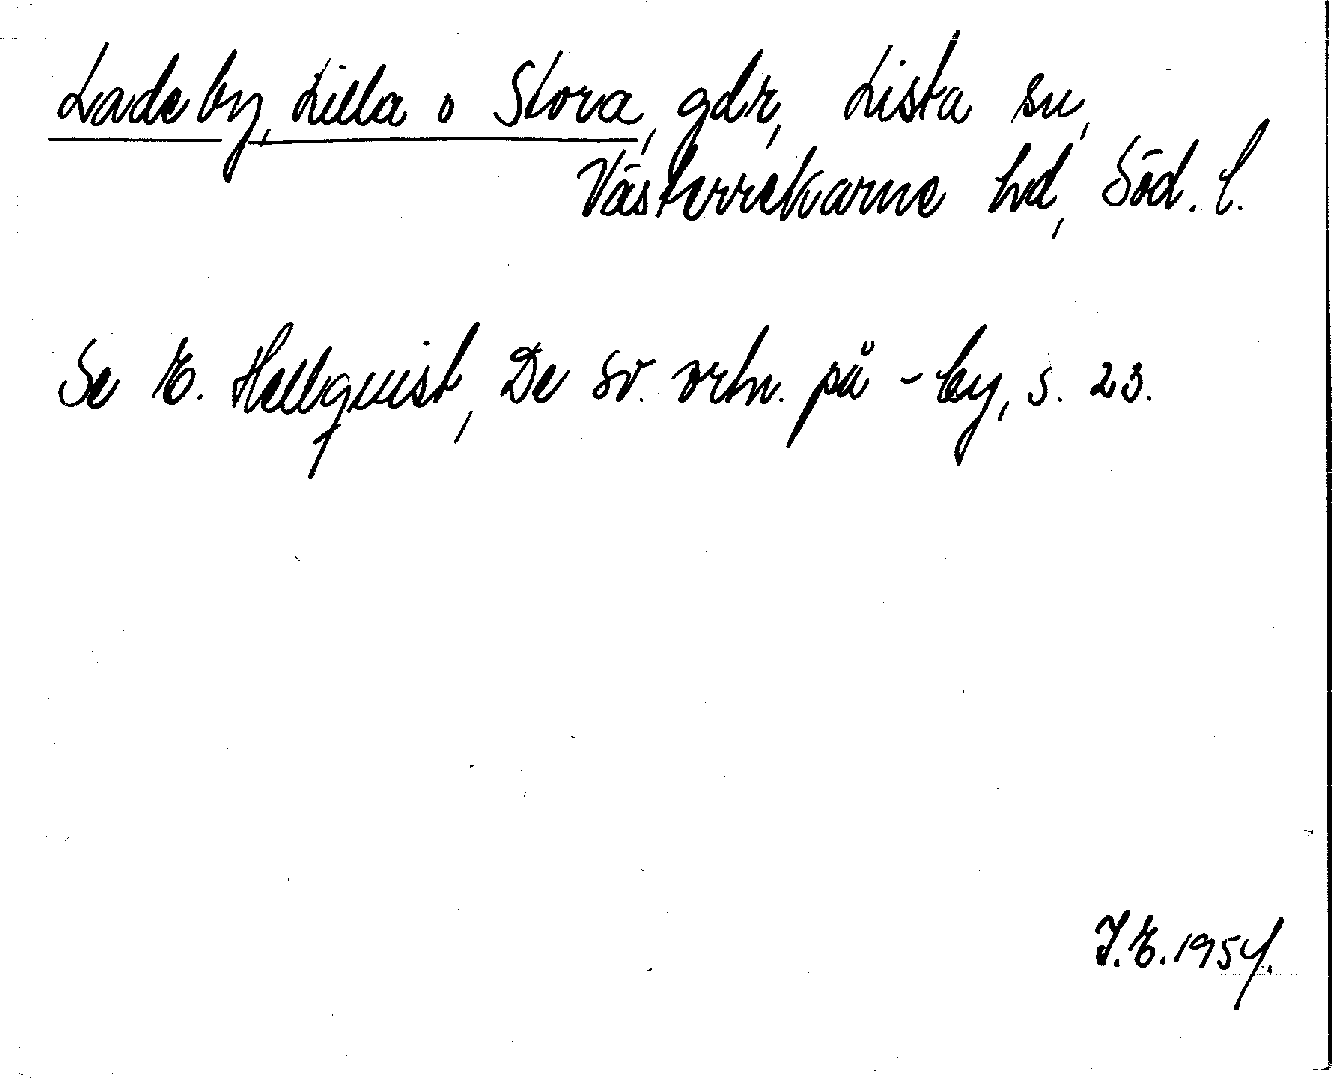 Ladeby, Lilla o Stora, gdr, Lista sn,
Västerrekarne hd, Söd. l.
Se E. Hellquist, De sv. ortn. på -by, s. 23.
J.E. 1954.